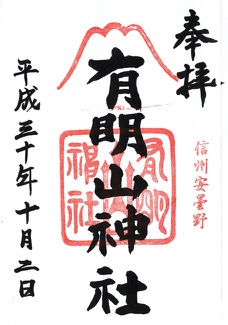 奉拝
信州安曇野
有明山神社
有明
神社
平成三十年十月二日